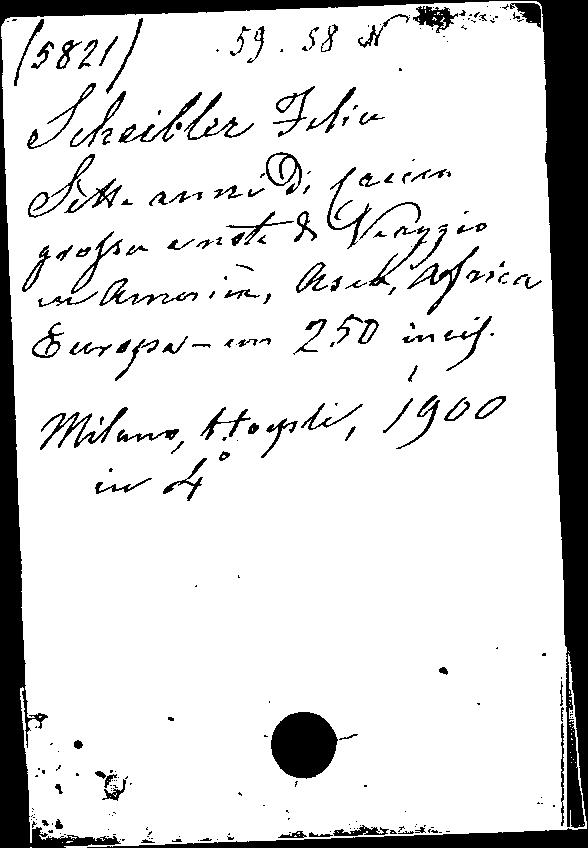 (5821) 59.58 N
Scheibler Felice
Sette anni di caccia
grossa e note di Viaggio
in America, Asia, Africa
Europa - con 250 incis.
Milano, Hoepli, 1900
in 4°